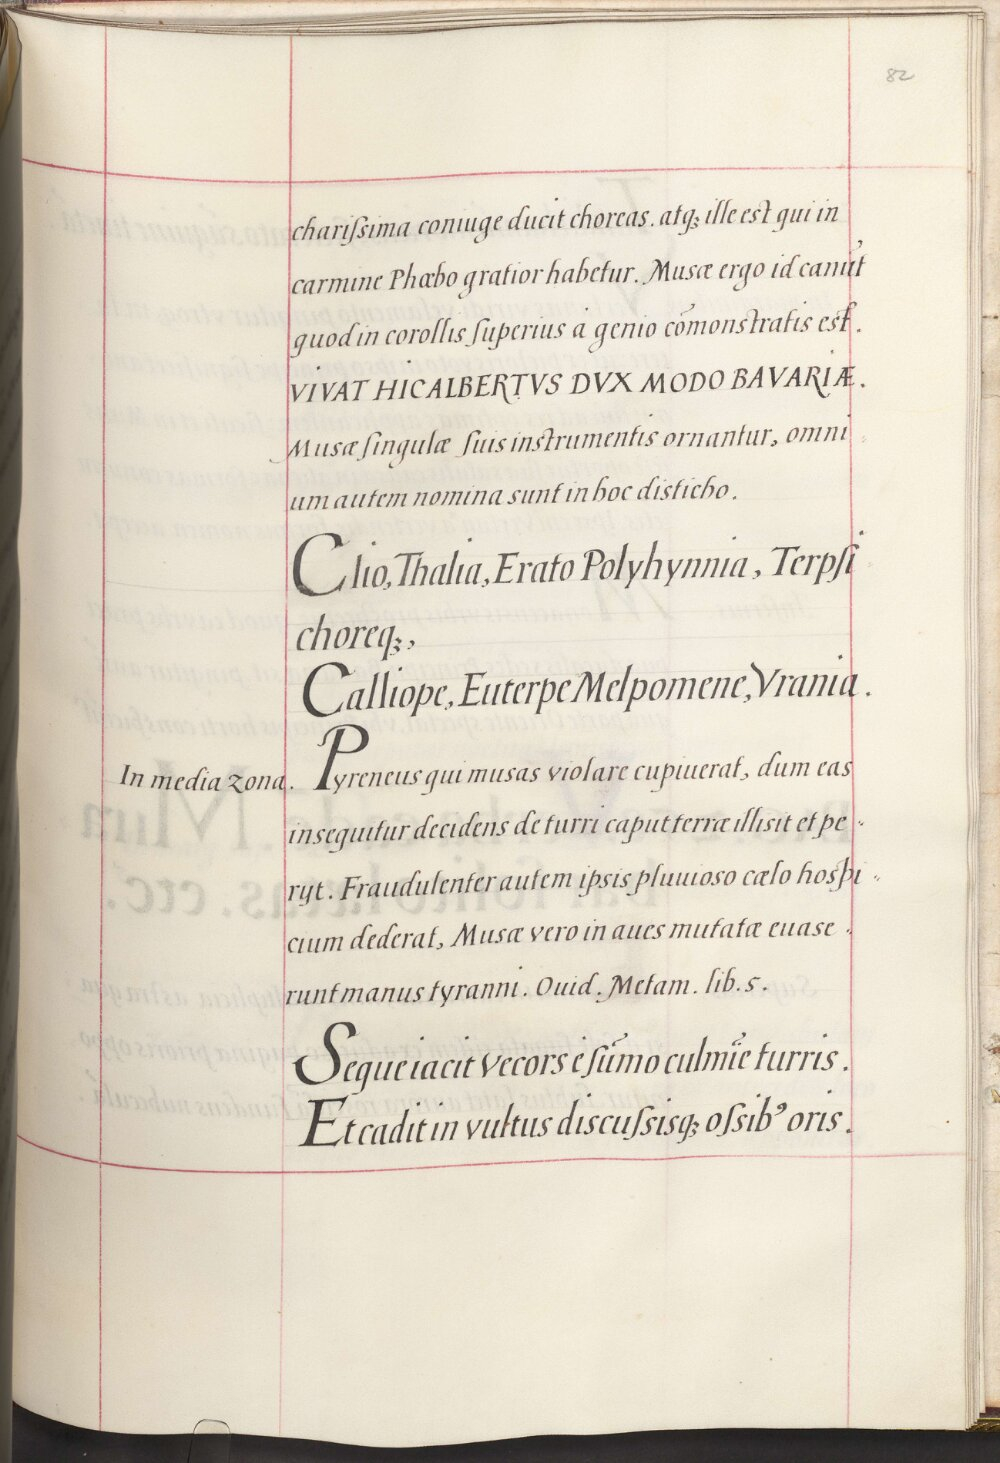 82
chariſsima coniuge ducit choreas. atq; ille est qui in
carmine Phœbo gratior habetur. Musæ ergo id canūt
quod in corollis ſuperius à genio cōmonstratis est.
VIVAT HIC ALBERTVS DVX MODO BAVARIÆ.
Musæ ſingulæ ſuis instrumentis ornantur, omni
um autem nomina sunt in hoc disticho.
Clio, Thalia, Erato Polyhynnia, Terpſi
choreq;,
Calliope, Euterpe Melpomene, Vrania.
In media zona. Pyreneus qui musas violare cupiuerat, dum eas
insequitur decidens de turri caput terræ illisit et pe
ryt. Fraudulenter autem ipsis pluuioso cælo hospi
cium dederat, Musæ vero in aues mutatæ euase
runt manus tyranni. Ouid. Metam. lib. 5.
Seque iacit vecors è ſūmo culmīe turris.
Et cadit in vultus discuſsisq; oſsib⁹ oris.